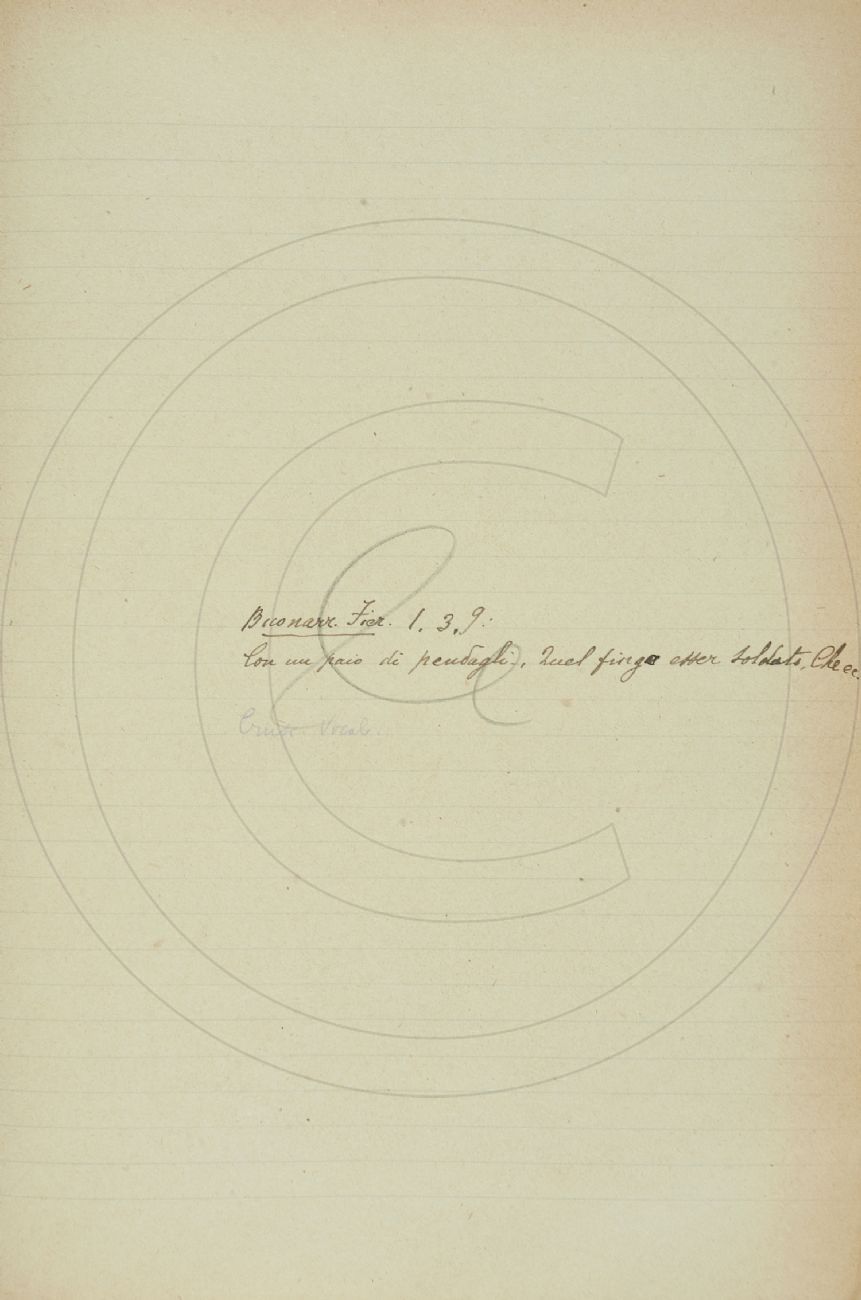 Buonarr. Fier. 1. 3. 9:
Con un paio di pendagli, Quel finge esser soldato, Che ec.
Crusc. Vocab.